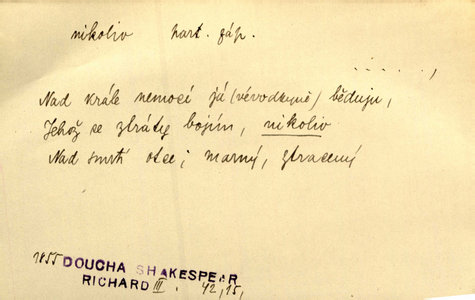 nikoliv part. záp.
. . . . . ,
Nad krále nemocí já (vévodkyně) běduju,
Jehož se ztráty bojím, nikoliv
Nad smrtí otce; marný, ztracený
1855 DOUCHA SHAKESPEAR
RICHARD III. 42,15,